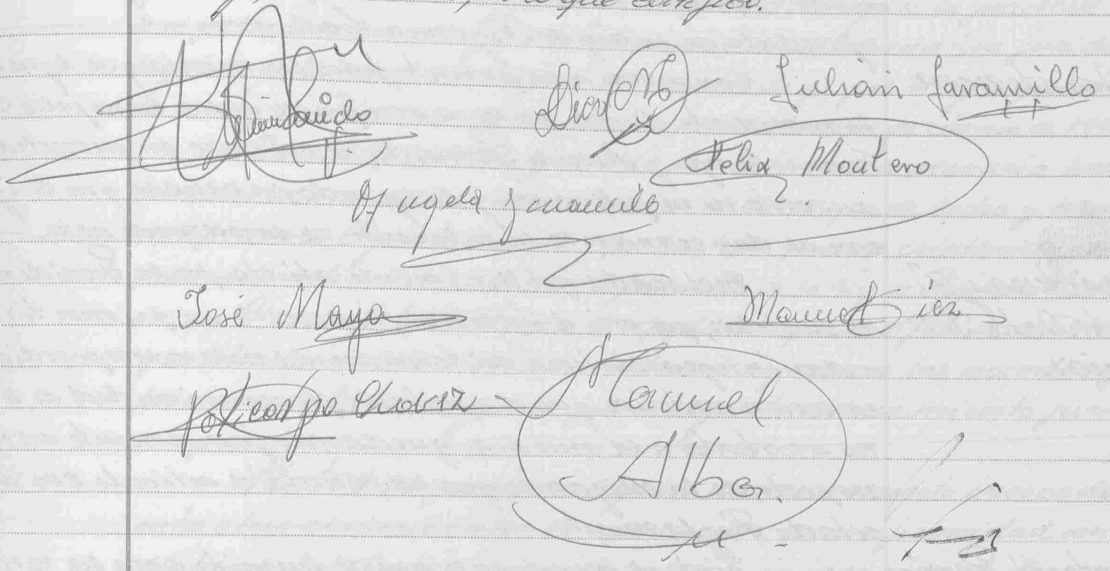 lo que certifico.
Julián Jaramillo
Felix Montero
Angela Jaramillo
José Mayo
Manuel Diez
Policarpo Chavez
Manuel
Alba.